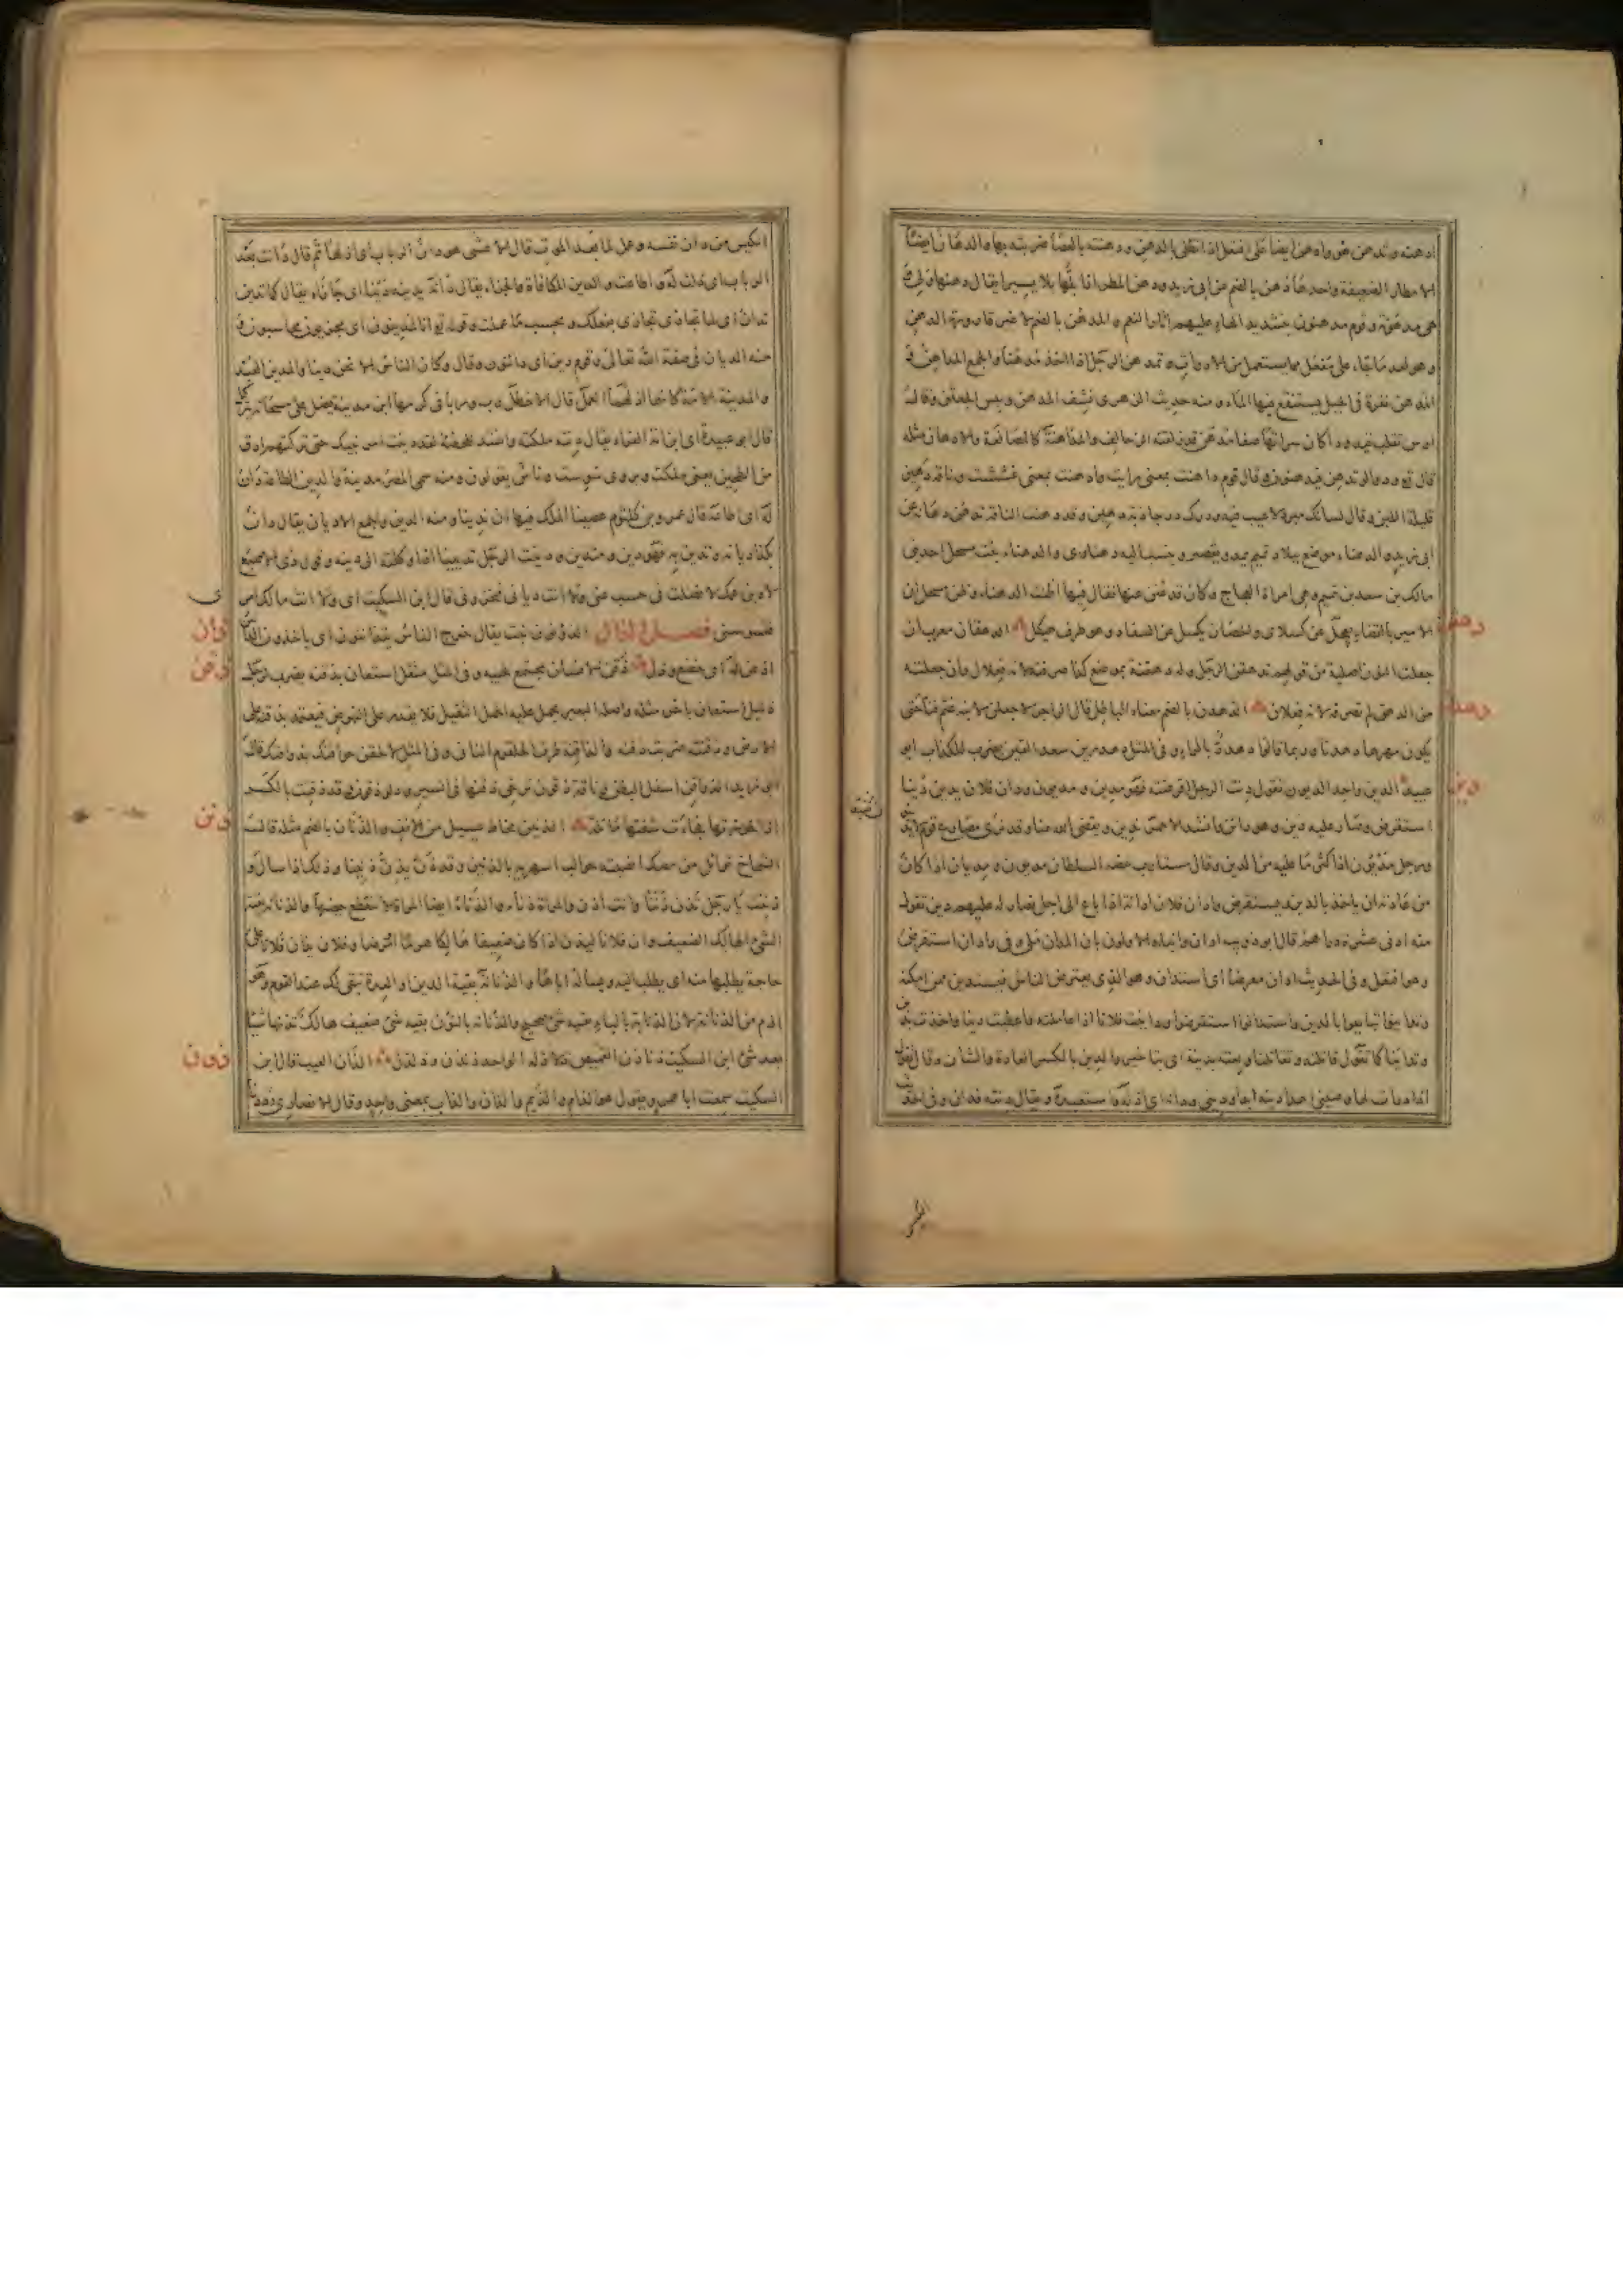 ادهنه وتدهن هو وادهن ايضا على افتعل اذا تطلى بالدهن ودهنته بالعصا ضربته بها والدهان ايضا
الامطار الضعيفة واحدها دهن بالضم عن ابى زيد ودهن المطر اذا بلها بلا يسيرا يقال دهنها ولى
هى مدهونة وقوم مدهنون بتشديد الهاء عليهم اثار النعم والمدهن بالضم لا غير قارورة الدهن
وهو احد ما جاء على مفعل مما يستعمل من الادوات وتمدهن الرجل اذا اخذ مدهنا والجمع المداهن
المدهن نقرة فى الجبل يستنقع فيها الماء ومنه حديث الزهرى نشف المدهن ويبس الجعثن وقال
والمداهنة كالمصانعة والادهان مثله
قال تع ودوا لو تدهن فيدهنون وقال قوم داهنت بمعنى واريت وادهنت بمعنى غششت وناقة دهين
قليلة اللبن وقال لسانك مبرد لا عيب فيه ودرك در جاذبة دهين وقد دهنت الناقة تدهن دهانة عن
ابى زيد والدهناء موضع ببلاد تميم يمد ويقصر وينسب اليه دهناوى والدهناء بنت مسحل احد بنى
مالك بن سعد بن تميم وهى امراة العجاج وكان قد عنن عنها فقال فيها اظنت الدهناء وظن مسحل ان
الامير بالقضاء يعجل عن كسلاتى والحصان يكسل عن السفاد وهو طرف هيكل الدهقان معرب ان
جعلت النون اصلية من قولهم تدهقن الرجل وله دهقنة بموضع كذا صرفته لانه فعلال وان جعلته
من الدهق لم تصرفه لانه فعلان الدهدن بالضم معناه الباطل قال الراجز لاجعلن لابنة عثم فنا حتى
يكون مهرها دهدنا وربما قالوا دهدر بالراء وفى المثل دهدرين سعد القين يضرب للكذاب ابو
عبيد الدين واحد الديون تقول دنت الرجل اقرضته فهو مدين ومديون ودان فلان يدين دينا
استقرض وصار عليه دين وهو دائن وانشد الاحمر ندين ويقضى الله عنا وقد نرى مصارع قوم لا يدينون
ورجل مديون اذا كثر ما عليه من الدين وقال مديون ومديان اذا كان
من عادته ان ياخذ بالدين ويستقرض وادان فلان ادانة اذا باع الى اجل فصار له عليهم دين تقول
منه ادنى عشرة دراهم قال ابو ذويب ادان وانباه الاولون بان المدان ملى وفى وادان استقرض
وهو افتعل وفى الحديث ادان معرضا اى استدان وهو الذى يعترض الناس فيستدين ممن امكنه
وتداينوا تبايعوا بالدين واستدانوا استقرضوا وداينت فلانا اذا عاملته فاعطيت دينا واخذت بدين
وتداينا كما تقول قاتلته وتقاتلنا وبعته بدينة اى بتاخير والدين بالكسر العادة والشان
ابدا ودينى ودانه اى اذله واستعبده ويقال دنته فدان وفى الحديث
الكيس
دهقن
دهدن
دين
الكيس من دان نفسه وعمل لما بعد الموت قال الاعشى هو دان الرباب اى اذلها ثم قال دانت بعد
الرباب اى ذلت له واطاعته والدين المكافاة والجزاء يقال دانه يدينه دينا اى جازاه يقال كما تدين
تدان اى كما تجازى تجازى بفعلك وبحسب ما عملت وقوله تع ائنا لمدينون اى مجزيون محاسبون و
منه الديان فى صفة الله تعالى وقوم دين اى دائنون وقال وكان الناس الا نحن دينا والمدين العبد
والمدينة الامة كانهما اذلهما العمل قال الاخطل ربت وربا فى كرمها ابن مدينة يظل على مسحاته يتركل
قال ابو عبيدة اى ابن امة الفراء يقال دينته ملكته وانشد للحطيئة لقد دينت امر بنيك حتى تركتهم ادق
من الطحين يعنى ملكت ويروى سوست وناس يقولون ومنه سمى المصر مدينة والدين الطاعة دان
له اى اطاعه قال عمرو بن كلثوم عصينا الملك فيها ان ندينا ومنه الدين والجمع الاديان يقال دان
بكذا ديانة وتدين به فهو دين ومتدين ودينت الرجل تديينا اذا وكلته الى دينه وقول ذى الاصبع
لاه ابن عمك لا افضلت فى حسب عنى ولا انت ديانى فتخزونى قال ابن السكيت اى ولا انت مالك امرى
فتسوسنى فصل الذال الذؤنون نبت يقال خرج الناس يتذأننون اى ياخذون الذآنين
اذعن له اى خضع وذل ذقن الانسان مجتمع لحييه وفى المثل مثقل استعان بذقنه يضرب لرجل
ذليل استعان باخر مثله واصله البعير يحمل عليه الحمل الثقيل فلا يقدر على النهوض فيعتمد بذقنه على
الارض وذقنته ضربت ذقنه والذاقنة طرف الحلقوم الناتى وفى المثل لالحقن حواقنك بذواقنك قال
ابو زيد الذواقن اسفل البطن ناقة ذقون ترخى ذقنها فى السير ودلو ذقون وقد ذقنت بالكسر
اذا خرزتها فجاءت شفتها مائلة الذنين مخاط يسيل من الانف والذنان بالضم مثله قال
الشماخ توائل من مصك انصبته حوالب اسهريه بالذنين وقد ذن يذن ذنينا وذلك اذا سال و
ذننت يا رجل تذن ذننا وانت اذن والمراة ذناء والذناء ايضا المراة لا ينقطع حيضها والذنانة بقية
الشئ الهالك الضعيف وان فلانا ليذن اذا كان ضعيفا هالكا هرما او مرضا وفلان يذان فلانا على
حاجة يطلبها منه اى يطلب اليه ويساله اياها والذنانة بقية الدين او العدة
بعد شئ ابن السكيت ذناذن القميص اسافله الواحد ذنذن وذلذل الذان العيب قال ابن
السكيت سمعت ابا عمرو يقول هو الذام والذيم والذان والذاب بمعنى واحد وقال الانصارى رددنا
ذأن
ذقن
ذنن
ذون